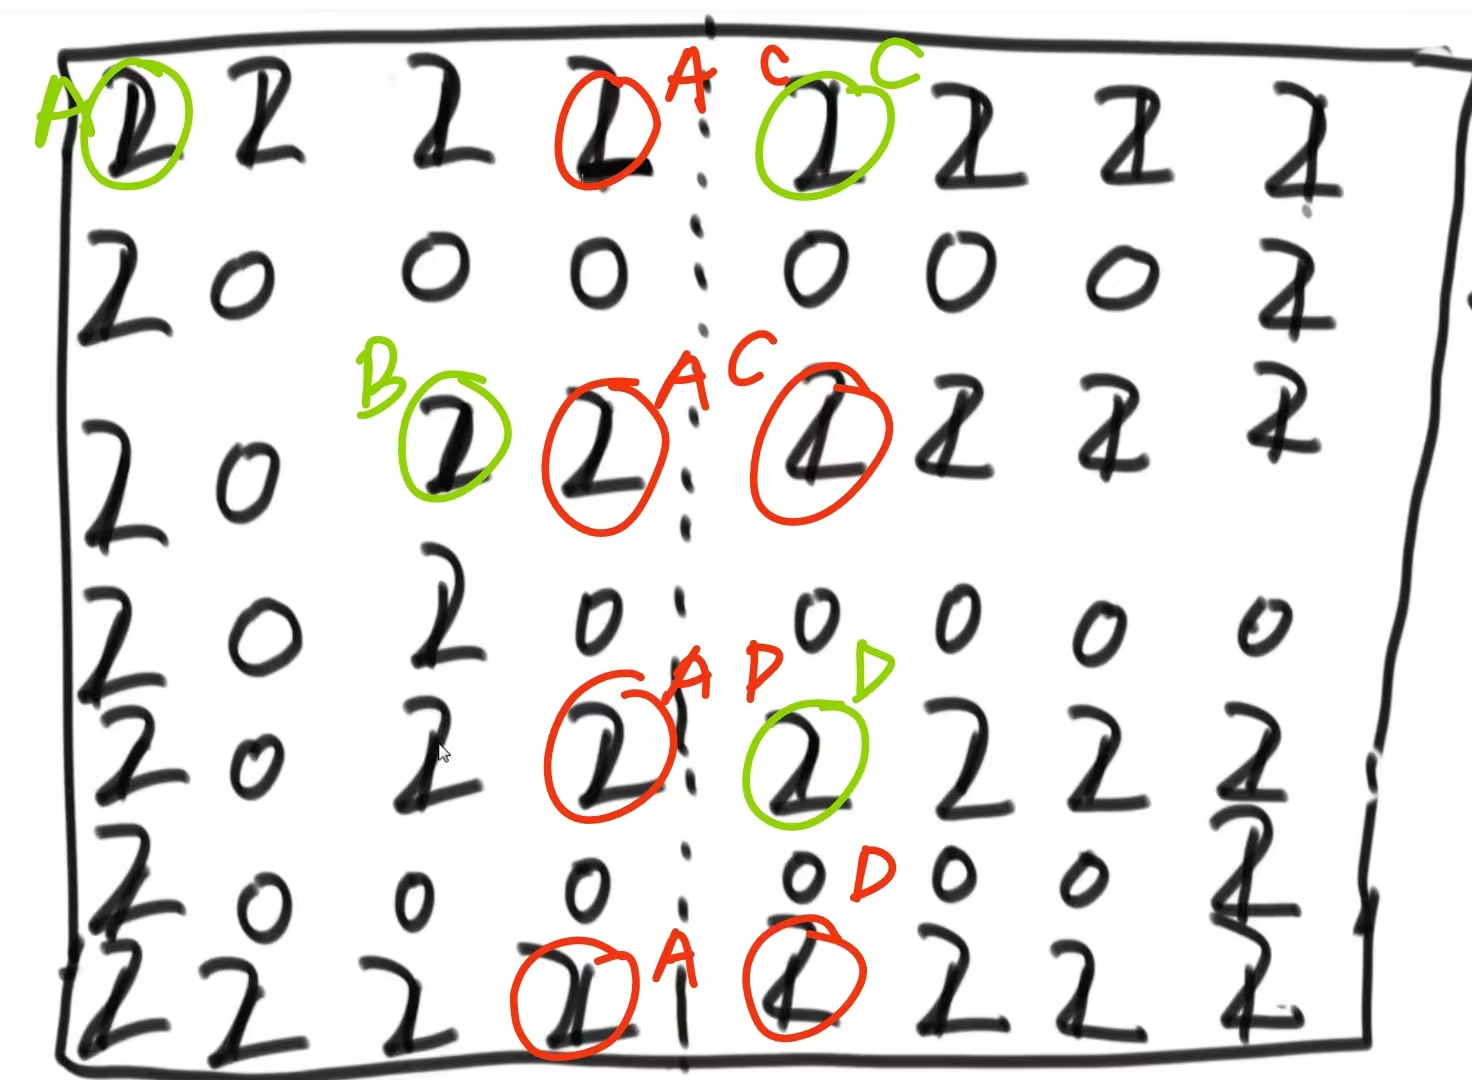 A 2 2 2 2 A C 2 C 2 2 2
2 0 0 0 0 0 0 2
2 0 B 2 2 A C 2 2 2 2
2 0 2 0 0 0 0 0
2 0 2 2 A D 2 D 2 2 2
2 0 0 0 0 D 0 0 2
2 2 2 2 A 2 2 2 2